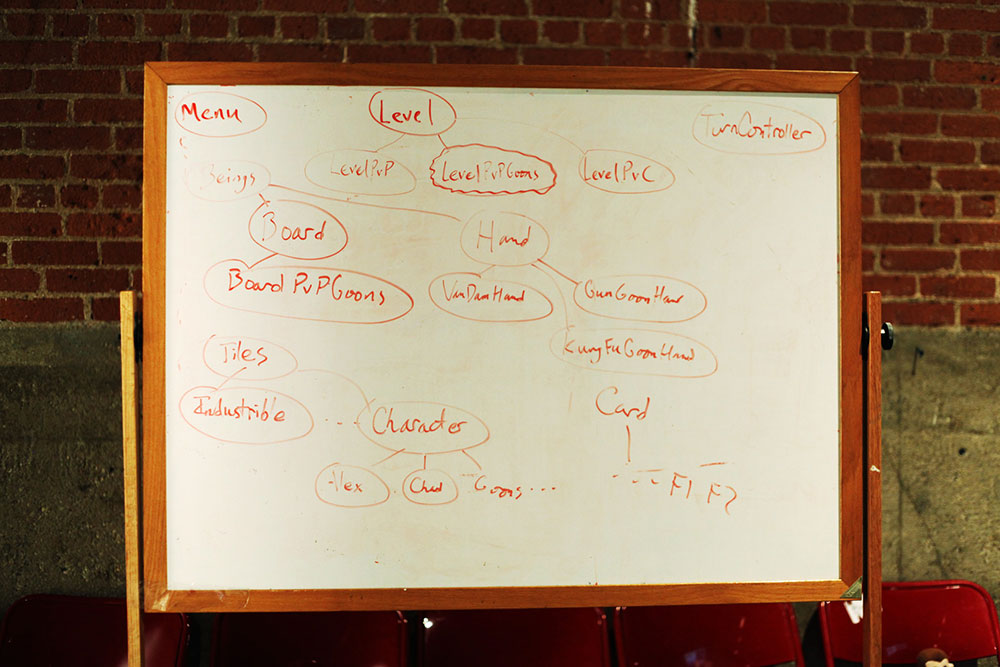 Menu
Level
TurnController
LevelPvP
LevelPvPGoons
LevelPvC
Beings
Board
Hand
BoardPvPGoons
VanDamHand
GunGoonHand
KungFuGoonHand
Tiles
Industrible
...
Character
Card
Alex
Chad
Goons...
... F1 F2